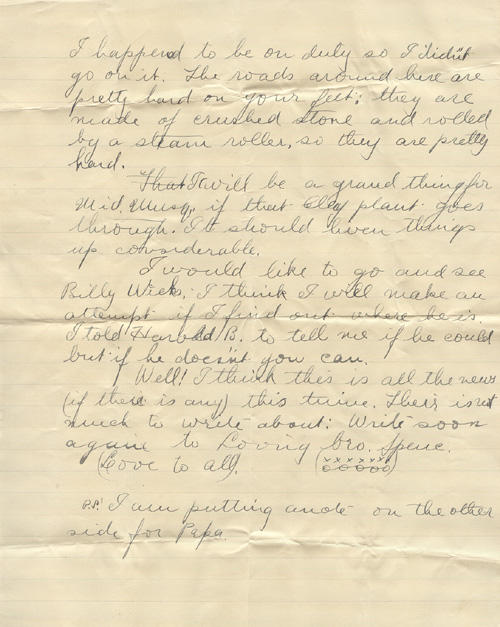 I happend to be on duty so I didn't
go on it. The roads around here are
pretty hard on your feet; they are
made of crushed stone and rolled
by a steam roller, so they are pretty
hard.
That will be a grand thing for
Mid. Musq. if that clay plant goes
through. It should liven things
up considerable.
I would like to go and see
Billy Wicks, I think I will make an
attempt if I find out where he is.
I told Harold B. to tell me if he could
but if he doesn't you can.
Well! I think this is all the news
(if there is any) this time. Their isn't
much to write about. Write soon
again to Loving bro. Spence.
(Love to all). (xxxxxx
ooooo)
P.S. I am putting a note on the other
side for Papa.